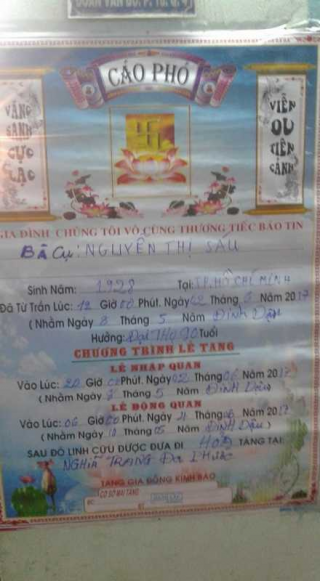 ĐOÀN VĂN BƠ, P.
CÁO PHÓ
VÃNG
CẢNH
CỰC
LẠC
VIỄN
DU
TIÊN
CẢNH
GIA ĐÌNH CHÚNG TÔI VÔ CÙNG THƯƠNG TIẾC BÁO TIN
Bà Cụ: NGUYỄN THỊ SÁU
Sinh Năm: 1928 Tại: TP. HỒ CHÍ MINH
Đã Từ Trần Lúc: 12 Giờ 00 Phút. Ngày 02 Tháng 6 Năm 2017
( Nhằm Ngày 8 Tháng 5 Năm ĐINH Dậu
Hưởng: Đại THỌ 90 Tuổi
CHƯƠNG TRÌNH LỄ TANG
LỄ NHẬP QUAN
Vào Lúc: 20 Giờ 00 Phút. Ngày 02 Tháng 06 Năm 2017
( Nhằm Ngày 8 Tháng 5 Năm ĐINH Dậu )
LỄ ĐỘNG QUAN
Vào Lúc: 06 Giờ 00 Phút Ngày 4 Tháng 06 Năm 2017
( Nhằm Ngày 10 Tháng 05 Năm ĐINH Dậu )
SAU ĐÓ LINH CỮU ĐƯỢC ĐƯA ĐI HOẢ TÁNG TẠI
NGHĨA TRANG Đa Phước
TANG GIA ĐỒNG KÍNH BÁO
CƠ SỞ MAI TÁNG